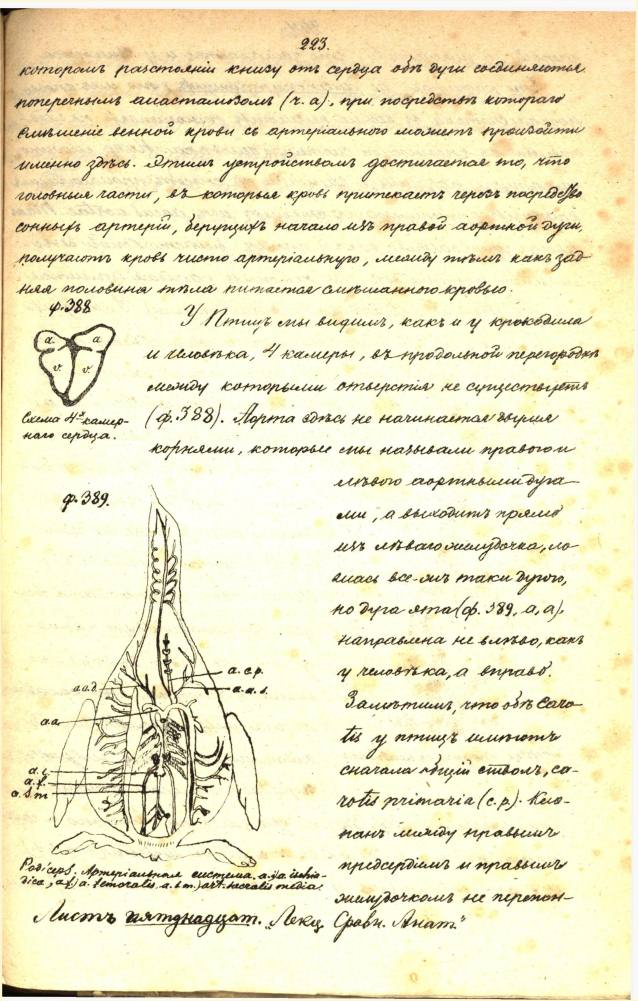 223.
которомъ разстояніи книзу отъ сердца обѣ дуги соединяются
поперечнымъ анастамозомъ (ч. а), при посредствѣ котораго
смѣшеніе венной крови съ артеріального можетъ произойти
именно здѣсь. Этимъ устройствомъ достигается то, что
головныя части, въ которыя кровь притекаетъ черезъ посредство
сонныхъ артерій, берущихъ начало изъ правой аортной дуги,
получаютъ кровь чисто артеріальную, между тѣмъ какъ зад-
няя половина тѣла питается смѣшанного кровью.
ф. 388
а. а
v v
Схема 4х камер-
наго сердца.
У Птицъ мы видимъ, какъ и у крокодила
и человѣка, 4 камеры, въ продольной перегородкѣ
между которыми отверстія не существуетъ
(ф. 388). Аорта здѣсь не начинается двумя
корнями, которые мы называли правого и
лѣвого аортными дуга-
ми, а выходитъ прямо
изъ лѣваго желудочка, ло
маясь все-жъ таки дугою,
но дуга эта (ф. 389, а, а),
направлена не влѣво, какъ
у человѣка, а вправо.
Замѣтимъ, что обѣ caro-
tis у птицъ имѣютъ
сначала общій стволъ, ca-
rotis primaria (c. p). Кла-
панъ между правымъ
предсердіемъ и правымъ
желудочкомъ не перепон-
ф. 389.
a. c p.
a. a. s.
a a d.
a a
a. i.
a. f.
a. s. m
Podiceps. Артеріальная система. a. i) a. ischia-
dica, a f) a. femoralis, a. s m) art. sacralis media.
Листъ пятнадцат. „Лекц. Сравн. Анат."